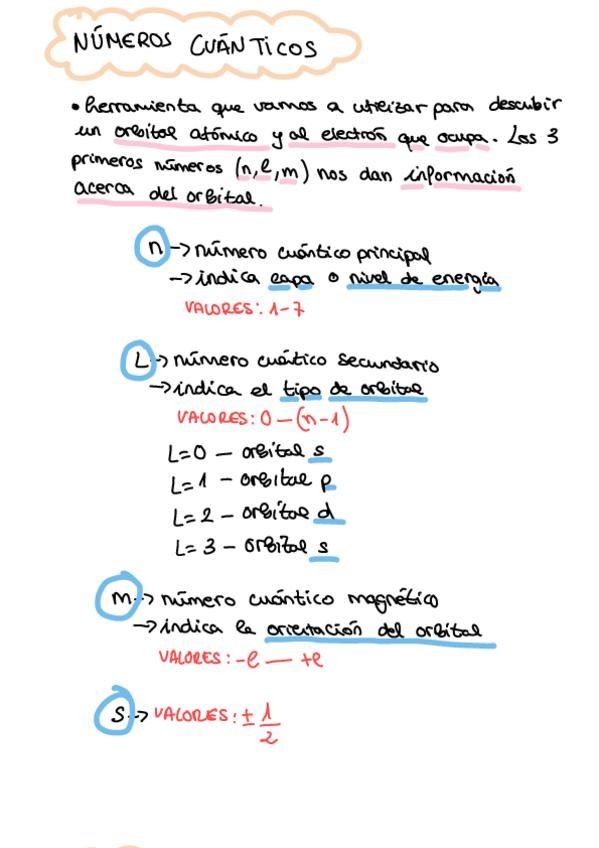 NÚMEROS CUÁNTICOS
• herramienta que vamos a utilizar para descubir
un orbital atómico y al electrón que ocupa. Los 3
primeros números (n,l,m) nos dan información
acerca del orbital.
n → número cuántico principal
→ indica capa o nivel de energía
VALORES: 1-7
L → número cuático secundario
→ indica el tipo de orbital
VALORES: 0 — (n-1)
L=0 – orbital s
L=1 – orbital p
L=2 – orbital d
L=3 – orbital s
m → número cuántico magnético
→ indica la orientación del orbital
VALORES: -l — +l
S → VALORES: ± 1/2